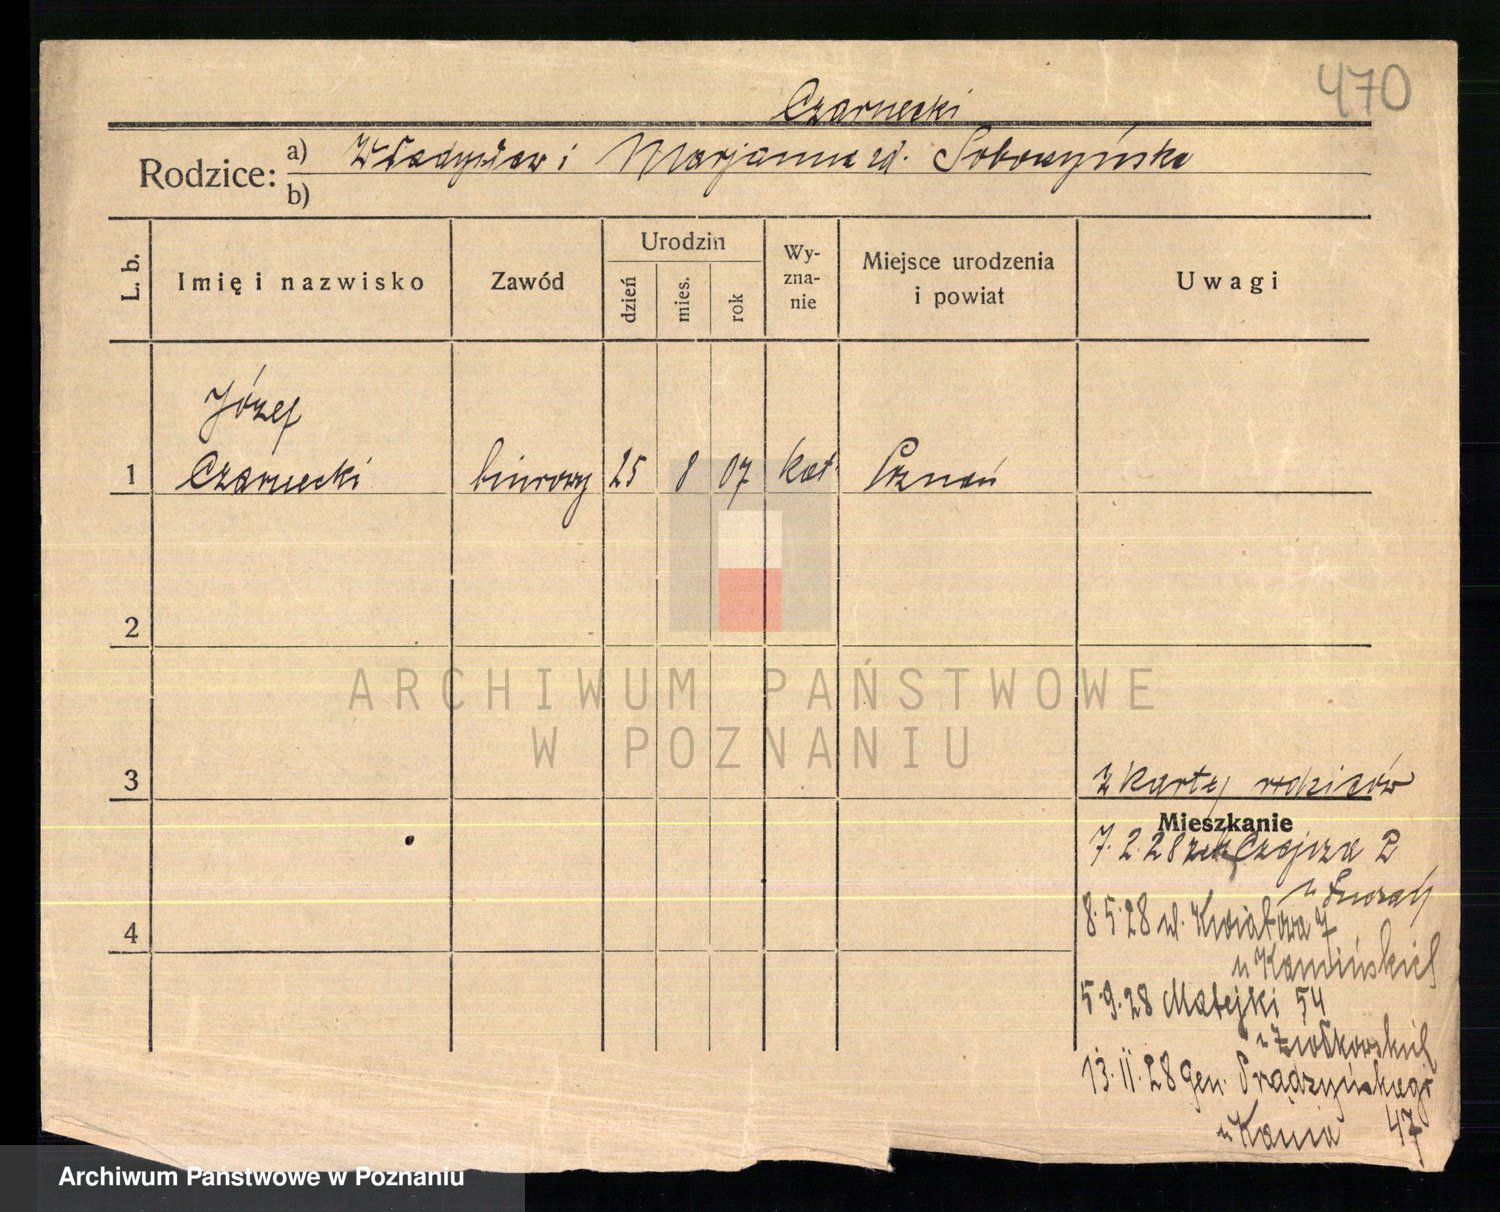 470
Czarnecki
Rodzice: a) Władysław i Marjanna zd. Soboczyńska
b)
L. b. Imię i nazwisko Zawód Urodzin dzień mies. rok Wy-zna-nie Miejsce urodzenia i powiat Uwagi
Józef
1 Czarnecki biurowy 25 8 07 kat Poznań
2
ARCHIWUM PAŃSTWOWE
W POZNANIU
3 z karty rodziców
Mieszkanie
7.2.28 Czajcza 2
u
8.5.28 ul. Kwiatowa 7
4
u Kamińskich
5.9.28 Matejki 54
u Ziółkowskich
13.11.28 Gen. Prądzyńskiego
u Kania 47
Archiwum Państwowe w Poznaniu